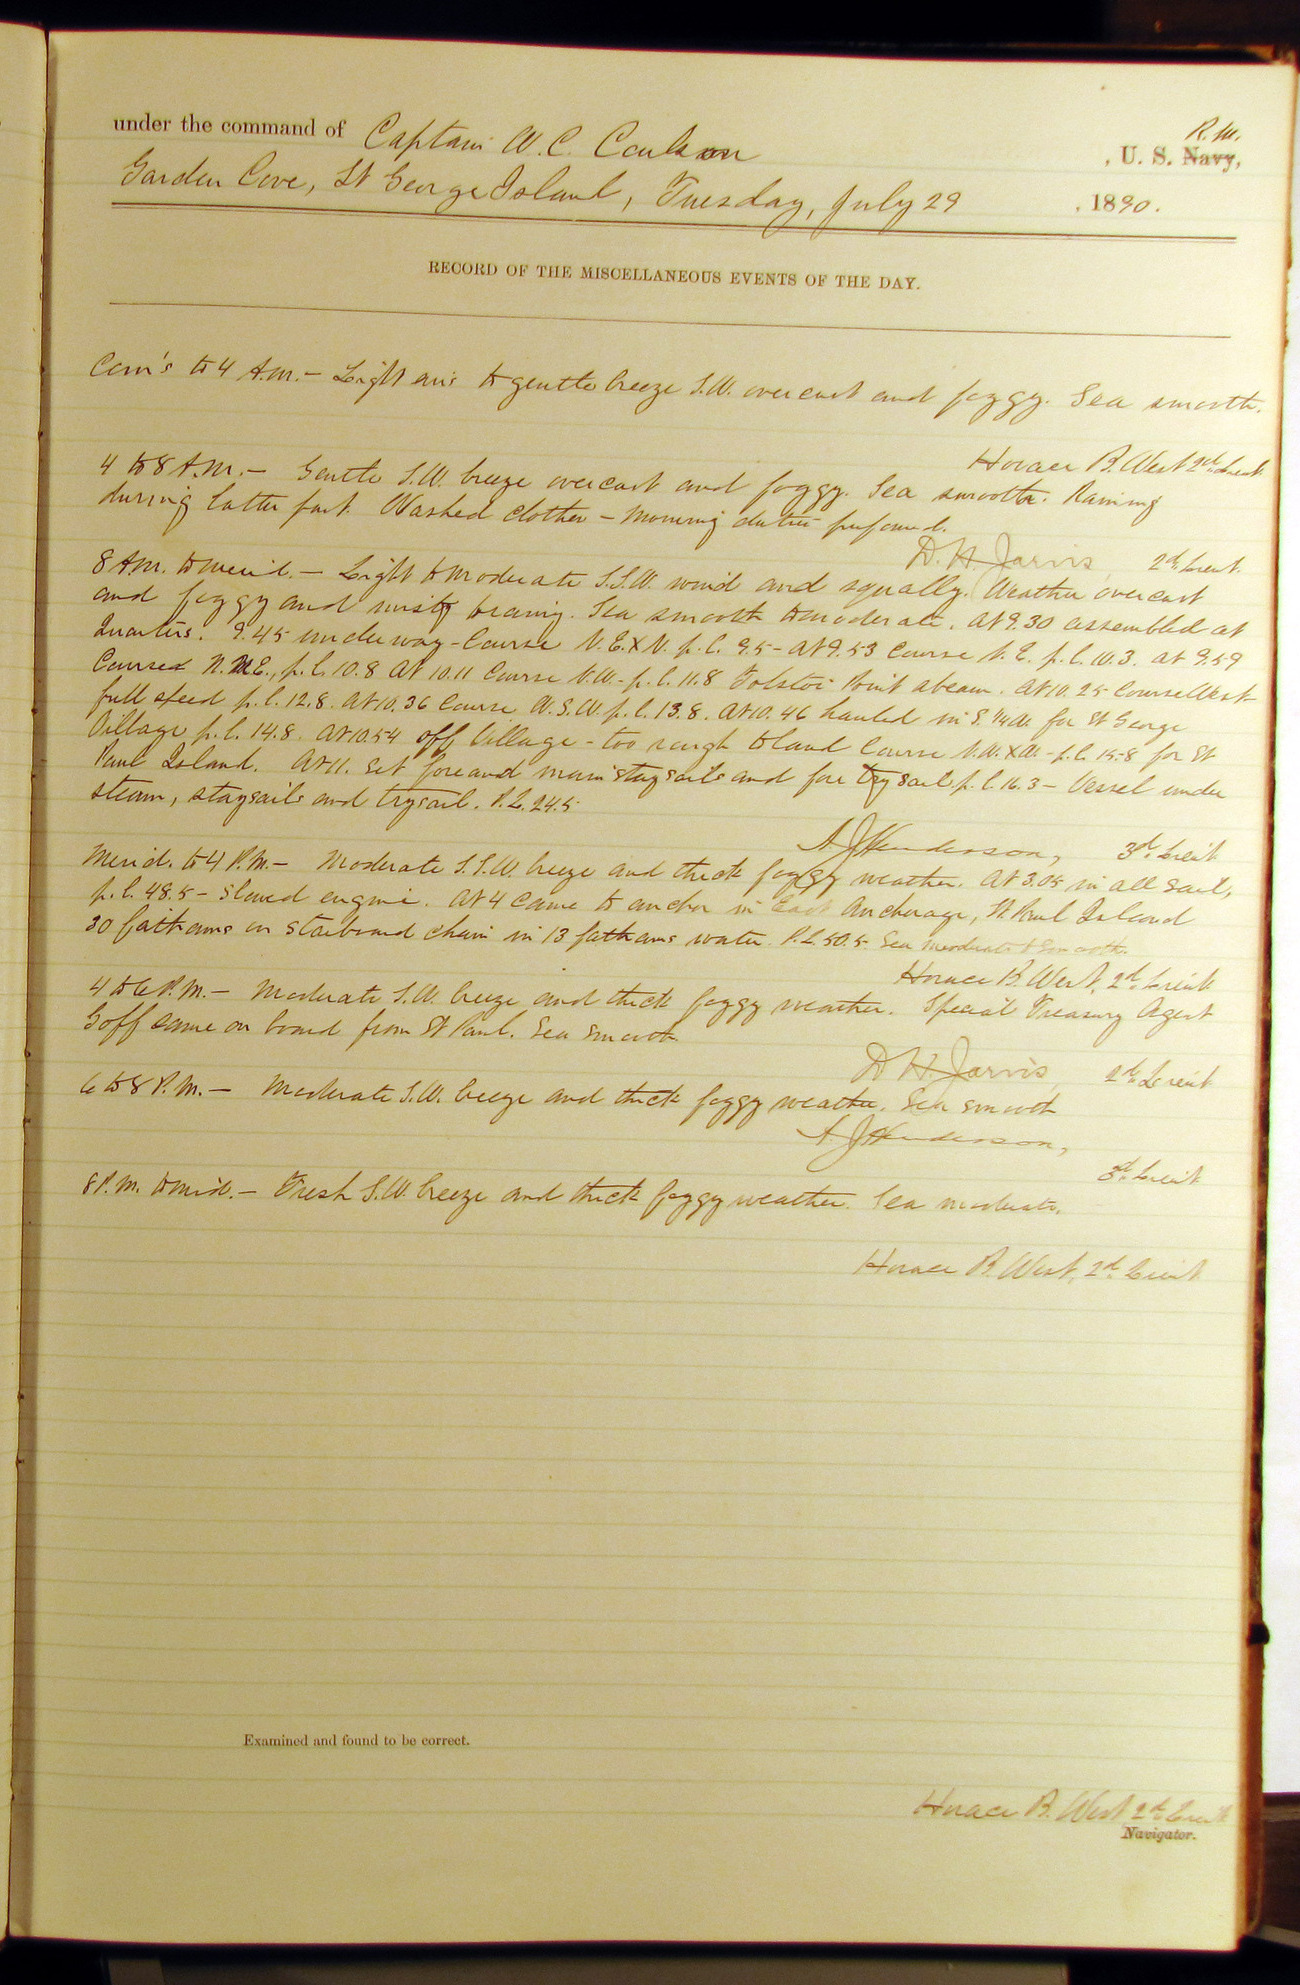 under the command of Captain W. C. Coulson R. M. , U. S. Navy,
Garden Cove, St George Island, Tuesday, July 29 , 1890.
RECORD OF THE MISCELLANEOUS EVENTS OF THE DAY.
Com's to 4 A.M. – Light airs to gentle breeze S.W. overcast and foggy. Sea smooth.
Horace B. West 2d. Lieut
4 to 8 A.M. – Gentle S.W. breeze overcast and foggy. Sea smooth. Raining
during latter part. Washed clothes – morning duties performed.
D. H. Jarvis, 2d. Lieut.
8 A.M. to merid. – Light to moderate S.S.W. wind and squally. Weather overcast
and foggy and misty. Sea smooth to moderate. At 9.30 assembled at
Quarters. 9.45 underway – Course N.E.XN. p.l. 9.5 – at 9.53 Course N.E. p.l. 10.3. at 9.59
Course N.E., p.l. 10.8 At 10.11 Course N.W. – p.l. 11.8 Tolstoi Point abeam. At 10.25 Course West
full speed p.l. 12.8. At 10.36 Course W.S.W. p.l. 13.8. At 10.46 hauled in S.¼W. for St George
Village p.l. 14.8. At 10.54 off Village – too rough to land Course N.W.XW. – p.l. 15.8 for St
Paul Island. At 11. Set fore and main staysails and fore try sail p.l. 16.3 – Vessel under
steam, staysails and trysail. P.L. 24.5
A. J. Henderson, 3d. Lieut
Merid. to 4 P.M. – Moderate S.S.W. breeze and thick foggy weather. At 3.05 in all sail,
p.l. 48.5 – Slowed engine. At 4 came to anchor in East Anchorage, St. Paul Island
30 fathoms on starboard chain in 13 fathoms water. P.L. 50.5 Sea moderate to smooth.
Horace B. West, 2d Lieut
4 to 6 P.M. – Moderate S.W. breeze and thick foggy weather. Special Treasury Agent
Goff came on board from St Paul. Sea smooth.
D. H. Jarvis, 2d. Lieut
6 to 8 P.M. – Moderate S.W. breeze and thick foggy weather. Sea smooth
A. J. Henderson,
3d. Lieut
8 P.M. to mid. – Fresh S.W. breeze and thick foggy weather. Sea moderate.
Horace B. West, 2d. Lieut
Examined and found to be correct.
Horace B. West 2d. Lieut
Navigator.